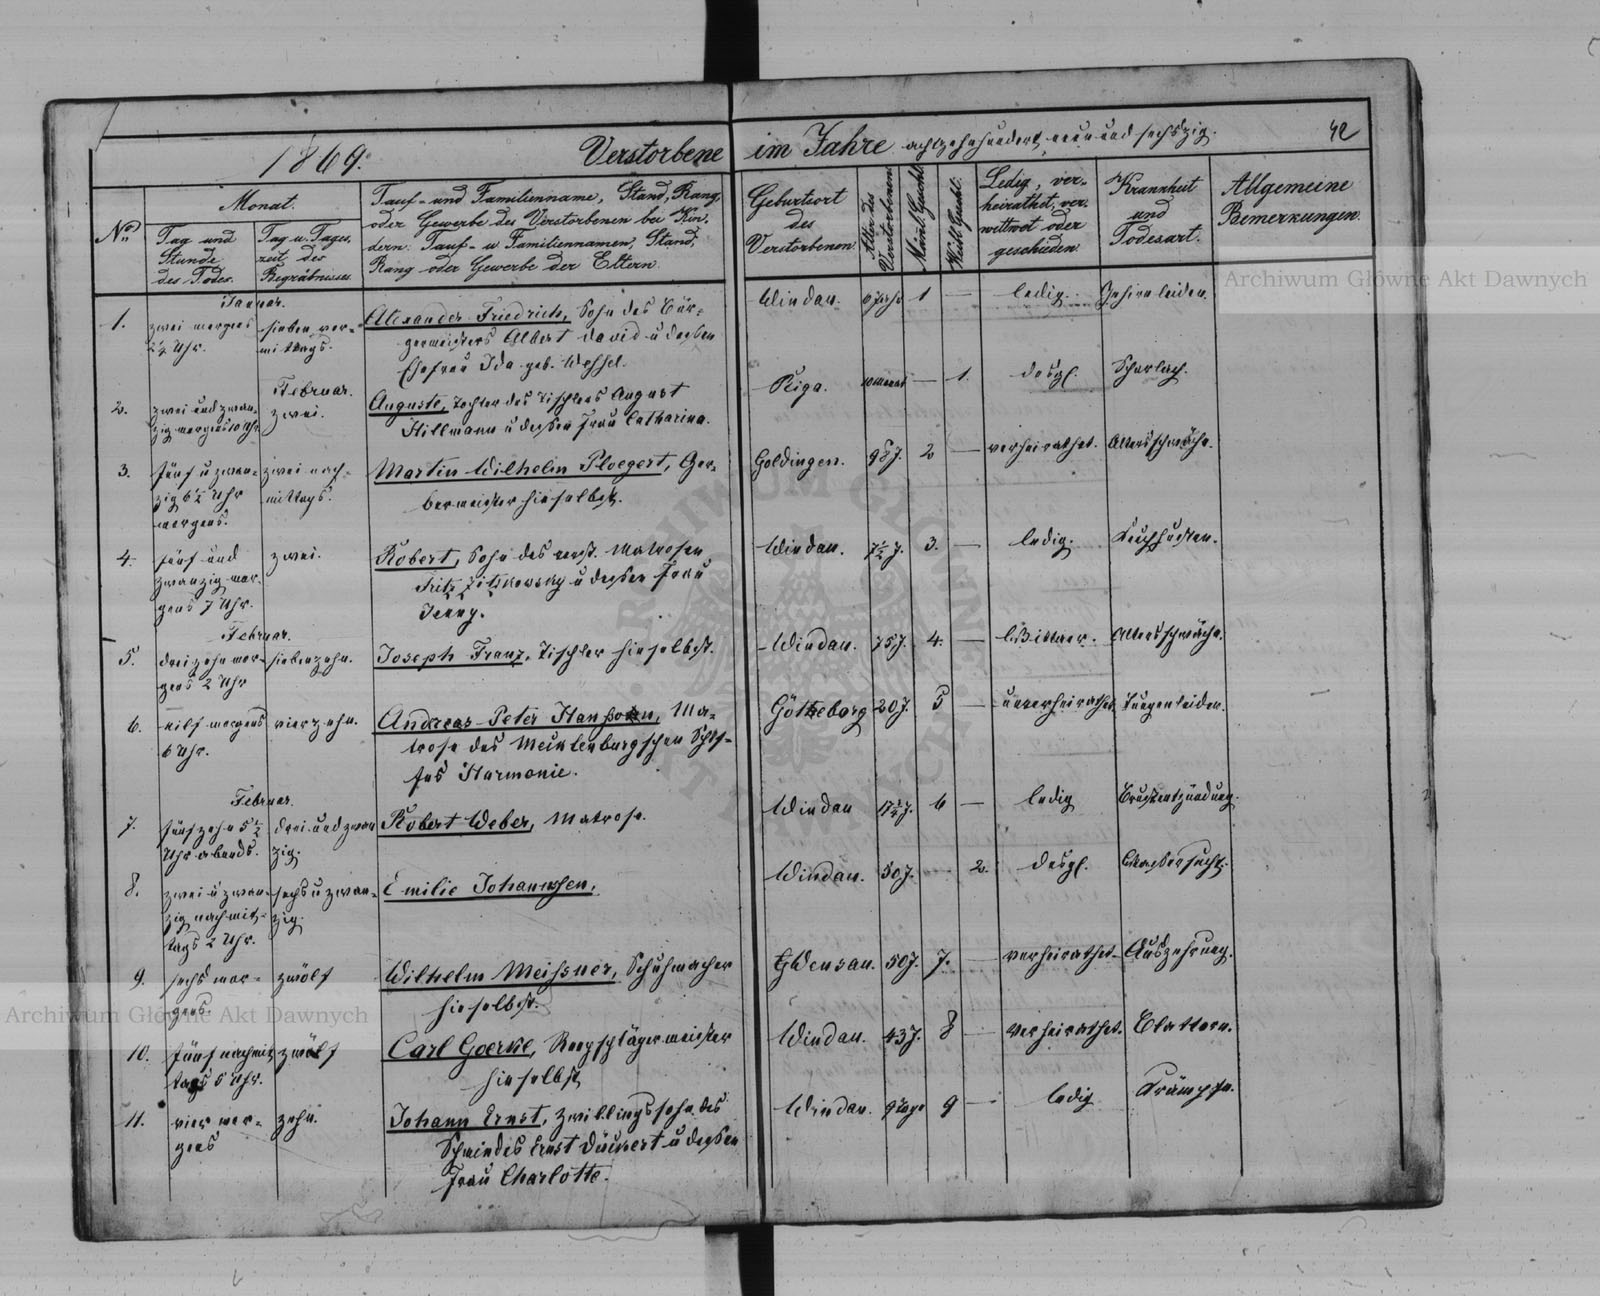 1869. Verstorbene im Jahre achtzehnhundert neun und sechszig. 42
No.
Monat.
Tag und
Stunde
des Todes.
Tag u. Tages-
zeit des
Begräbnisses
Tauf- und Familienname, Stand, Rang,
oder Gewerbe des Verstorbenen bei Kin-
dern: Tauf- u Familiennamen, Stand,
Rang oder Gewerbe der Eltern.
Geburtsort
des
Verstorbenen
Alter des
Verstorbenen
Männl. Geschl.
Weibl. Geschl.
Ledig, ver-
heirathet, ver-
wittwet oder
geschieden
Krankheit
und
Todesart.
Allgemeine
Bemerkungen.
Archiwum Główne Akt Dawnych
Januar.
1. zwei morgens
2¼ Uhr.
sieben vor-
mittags.
Alexander Friedrich, Sohn des Bür-
germeisters Albert David u dessen
Ehefrau Ida geb. Wessel.
Windau. 1 — ledig. Gehirnleiden.
Februar.
2. zwei und zwan-
zig morgens 10 Uhr.
zwei.
Auguste, Tochter des Tischlers August
Hillmann u dessen Frau Catharina.
Riga. 10 Monat — 1. desgl. Scharlach.
3. fünf u zwan-
zig 6½ Uhr
morgens.
zwei nach-
mittags.
Martin Wilhelm Ploegert, Ger-
bermeister hieselbst.
Goldingen. 98 J. 2 — verheirathet. Altersschwäche.
4. fünf und
zwanzig mor-
gens 7 Uhr.
zwei.
Robert, Sohn des verst. Matrosen
Fritz Zitkowsky u dessen Frau
Jenny.
Windau. 7½ J. 3. — ledig. Keuchhusten.
Februar.
5. dreizehn mor-
gens 2 Uhr
siebenzehn.
Joseph Franz, Tischler hieselbst.
Windau. 75 J. 4. — Wittwer. Altersschwäche.
6. eilf morgens
6 Uhr.
vierzehn.
Andreas Peter Hansson, Ma-
trose des Mecklenburgschen Schif-
fes Harmonie.
Götheborg 20 J. 5 — unverheirathet Lungenleiden.
Februar.
7. fünfzehn 5½
Uhr abends.
drei und zwan
zig.
Robert Weber, Matrose.
Windau 17¼ J. 6 — ledig Brustentzündung.
8. zwei u zwan-
zig nachmit-
tags 2 Uhr.
sechs u zwan-
zig.
Emilie Johannsen.
Windau. 50 J. — 2. desgl. Wassersucht.
9. sechs mor-
gens.
zwölf
Wilhelm Meissner, Schuhmacher
hieselbst.
50 J. 7. — verheirathet. Auszehrung.
Archiwum Główne Akt Dawnych
10. fünf nachmit
tags 6 Uhr.
zwölf
Carl Goerke, Reepschlägermeister
hieselbst
Windau. 43 J. 8 — verheirathet. Blattern.
11. vier mor-
gens
zehn.
Johann Ernst, Zwillingssohn des
Schmiedes Ernst Däuvert u dessen
Frau Charlotte.
Windau. 9 Tage 9 — ledig Krämpfe.